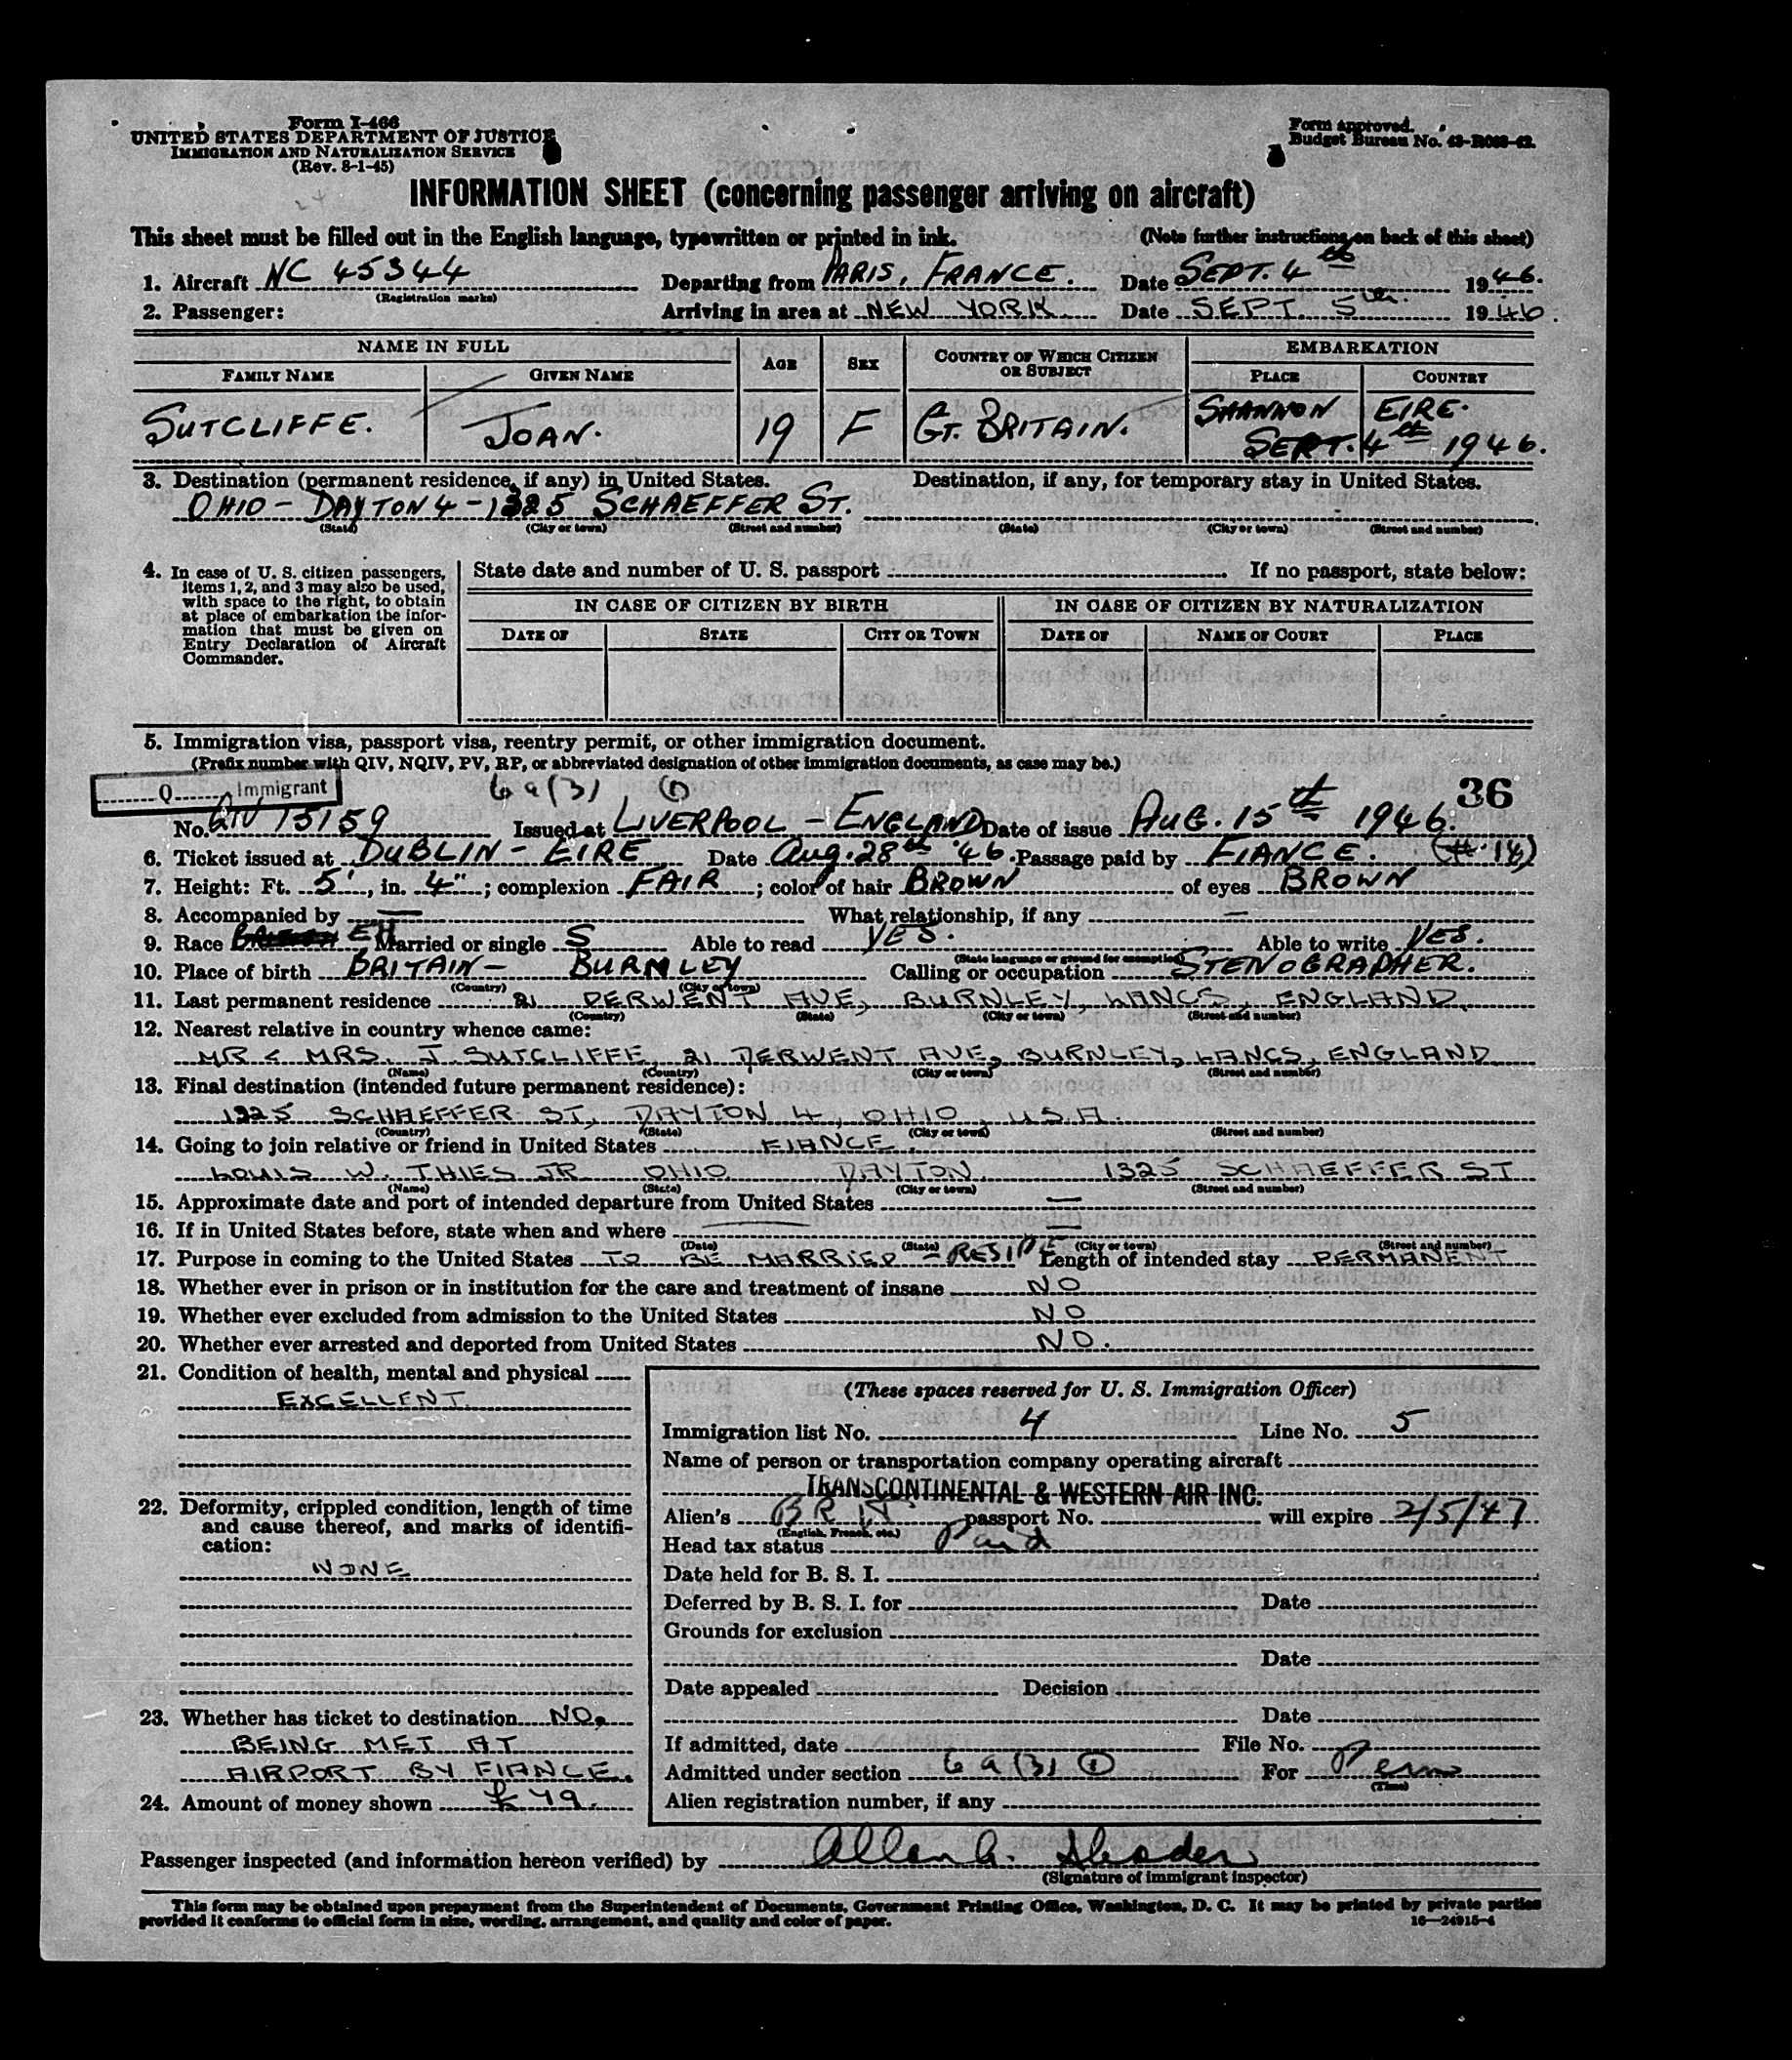 Form I-466
UNITED STATES DEPARTMENT OF JUSTICE
IMMIGRATION AND NATURALIZATION SERVICE
(Rev. 8-1-45)
Form approved.
Budget Bureau No.
INFORMATION SHEET (concerning passenger arriving on aircraft)
This sheet must be filled out in the English language, typewritten or printed in ink. (Note further instructions on back of this sheet)
1. Aircraft NC 45344 Departing from PARIS, FRANCE. Date SEPT. 4th 1946.
(Registration marks)
2. Passenger: Arriving in area at NEW YORK Date SEPT. 5th. 1946.
NAME IN FULL AGE SEX COUNTRY OF WHICH CITIZEN OR SUBJECT EMBARKATION
FAMILY NAME GIVEN NAME PLACE COUNTRY
SUTCLIFFE. JOAN. 19 F GT. BRITAIN. SHANNON EIRE.
SEPT. 4th 1946.
3. Destination (permanent residence, if any) in United States. Destination, if any, for temporary stay in United States.
OHIO - DAYTON 4 - 1325 SCHAEFFER ST.
(State) (City or town) (Street and number) (State) (City or town) (Street and number)
4. In case of U. S. citizen passengers, items 1, 2, and 3 may also be used, with space to the right, to obtain at place of embarkation the information that must be given on Entry Declaration of Aircraft Commander.
State date and number of U. S. passport If no passport, state below:
IN CASE OF CITIZEN BY BIRTH IN CASE OF CITIZEN BY NATURALIZATION
DATE OF STATE CITY OR TOWN DATE OF NAME OF COURT PLACE
5. Immigration visa, passport visa, reentry permit, or other immigration document.
(Prefix number with QIV, NQIV, PV, RP, or abbreviated designation of other immigration documents, as case may be.)
Q Immigrant 6a(3) (1) 36
No. QIV 15159 Issued at LIVERPOOL - ENGLAND Date of issue AUG. 15th 1946.
6. Ticket issued at DUBLIN - EIRE Date Aug. 28th '46. Passage paid by FIANCE. (#14)
7. Height: Ft. 5', in. 4"; complexion FAIR; color of hair BROWN of eyes BROWN
8. Accompanied by — What relationship, if any —
9. Race EH Married or single S Able to read YES. Able to write YES.
(State language or ground for exemption)
10. Place of birth BRITAIN - BURNLEY Calling or occupation STENOGRAPHER.
(Country) (City or town)
11. Last permanent residence 21 DERWENT AVE, BURNLEY, LANCS, ENGLAND
(Country) (State) (City or town) (Street and number)
12. Nearest relative in country whence came:
MR & MRS. J. SUTCLIFFE, 21 DERWENT AVE, BURNLEY, LANCS, ENGLAND
(Name) (Country) (City or town) (Street and number)
13. Final destination (intended future permanent residence):
1325 SCHAEFFER ST, DAYTON 4, OHIO, U.S.A.
(Country) (State) (City or town) (Street and number)
14. Going to join relative or friend in United States FIANCE.
LOUIS W. THIES JR OHIO DAYTON 1325 SCHAEFFER ST
(Name) (State) (City or town) (Street and number)
15. Approximate date and port of intended departure from United States —
16. If in United States before, state when and where —
(Date) (State) (City or town) (Street and number)
17. Purpose in coming to the United States TO BE MARRIED - RESIDE Length of intended stay PERMANENT
18. Whether ever in prison or in institution for the care and treatment of insane NO
19. Whether ever excluded from admission to the United States NO
20. Whether ever arrested and deported from United States NO.
21. Condition of health, mental and physical
EXCELLENT
22. Deformity, crippled condition, length of time and cause thereof, and marks of identification:
NONE
23. Whether has ticket to destination NO.
BEING MET AT
AIRPORT BY FIANCE.
24. Amount of money shown £49.
(These spaces reserved for U. S. Immigration Officer)
Immigration list No. 4 Line No. 5
Name of person or transportation company operating aircraft
TRANSCONTINENTAL & WESTERN AIR INC.
Alien's BRIT passport No. will expire 2/5/47
(English, French, etc.)
Head tax status Paid
Date held for B. S. I.
Deferred by B. S. I. for Date
Grounds for exclusion
Date
Date appealed Decision
Date
If admitted, date File No.
Admitted under section 6a(3) (1) For Perm
(Time)
Alien registration number, if any
Passenger inspected (and information hereon verified) by Allen
(Signature of immigrant inspector)
This form may be obtained upon prepayment from the Superintendent of Documents, Government Printing Office, Washington, D. C. It may be printed by private parties
provided it conforms to official form in size, wording, arrangement, and quality and color of paper. 16—24915-4